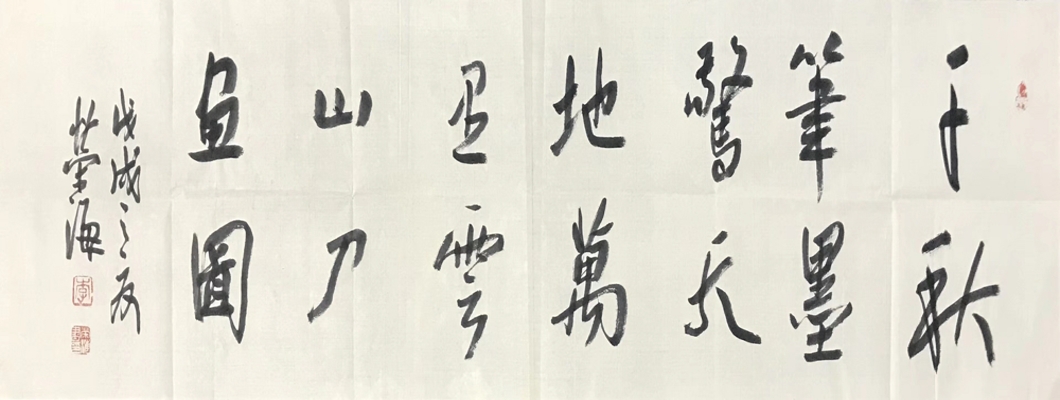 千秋
筆墨
驚天
地萬
里雲
山入
畫圖
戊戌之夏
荣海